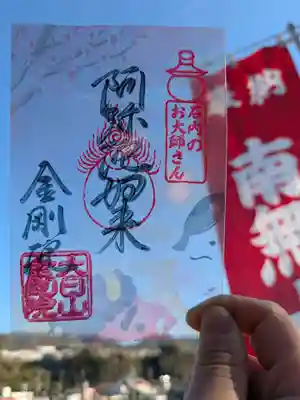 石内の
お大師さん
阿弥陀如来
金剛院
大白山
奉納
南無